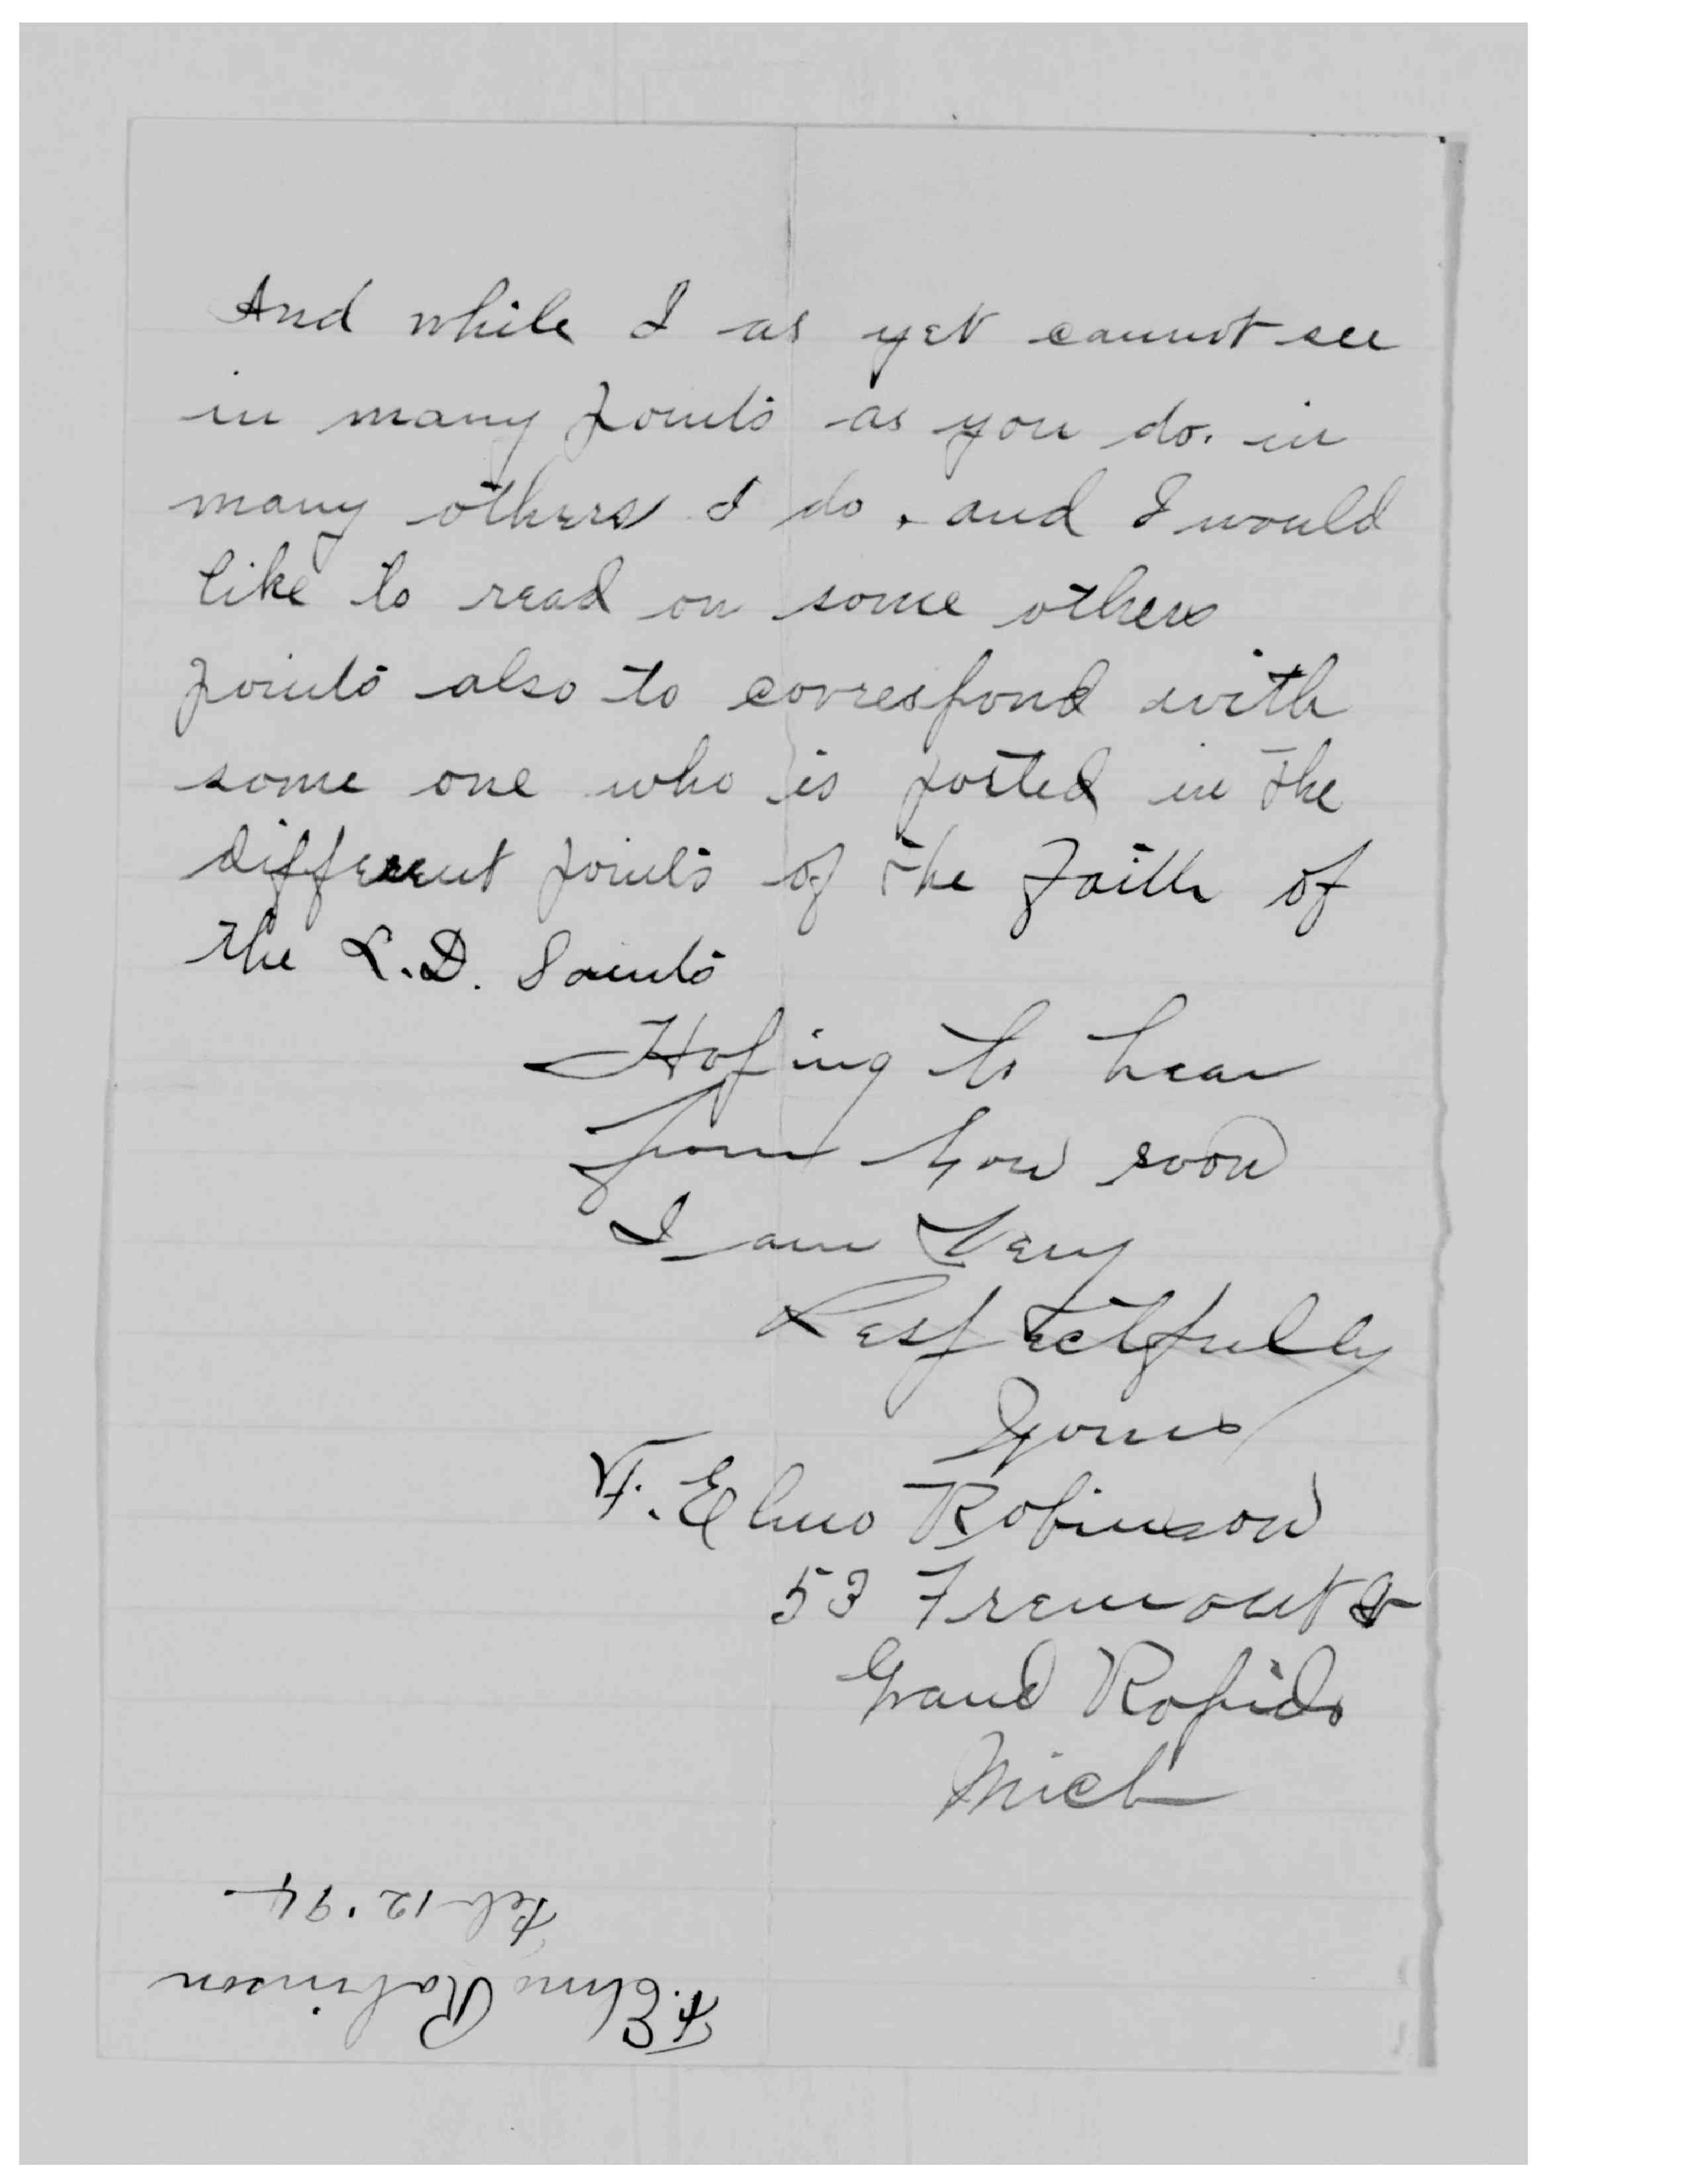 And while I as yet cannot see
in many points as you do. in
many others I do, and I would
like to read on some others
points also to correspond with
some one who is posted in the
different points of the Faith of
the L.D. Saints
Hoping to hear
from you soon
I am Very
Respectfully
Yours
F. Elmo Robinson
53 Fremont St
Grand Rapids
Mich
F. Elmo Robinson
Feb 12 '94